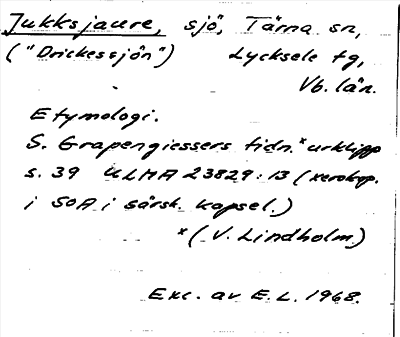 Jukksjaure, sjö, Tärna sn,
("Drickessjön") Lycksele tg,
Vb. län.
Etymologi.
S. Grapengiessers tidn.ˣ urklipp
s. 39 ULMA 23829:13 (xerokop.
i SOA i särsk. kapsel.)
ˣ (V. Lindholm)
Exc. av E.L. 1968.